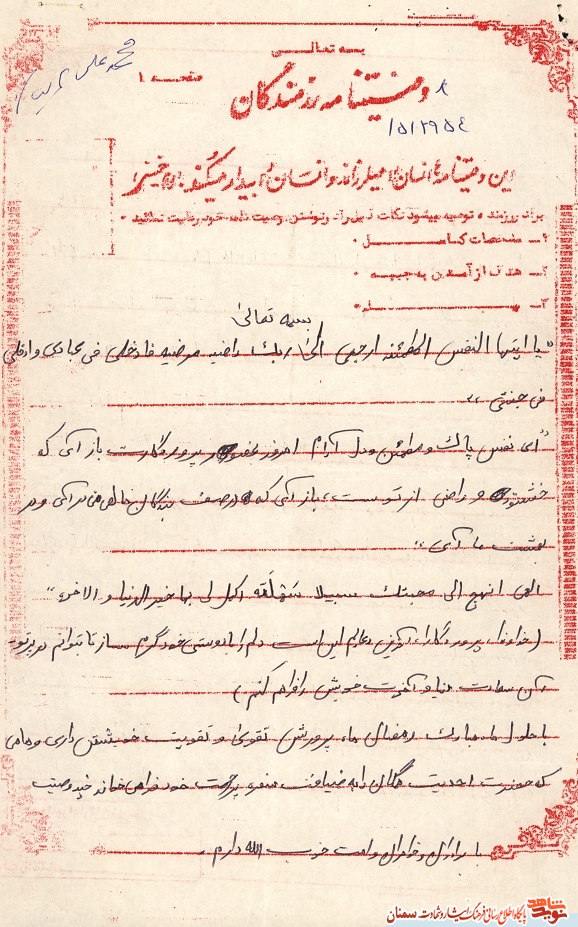 بسه تعالی
صفحه ۱
محمد علی
وصیتنامه رزمندگان
۱۵۱۲۹۵۴
این وصیتنامه‌ها انسان را میلرزاند و انسان را بیدار میکند امام خمینی
برادر رزمنده توصیه میشود نکات ذیل را در نوشتن وصیت نامه خود رعایت نمائید
۱ـ مشخصات کامل
۲ـ هدف از آمدن به جبهه
۳ـ پیام
بسمه تعالی
"یا ایتها النفس المطمئنه ارجعی الی ربک راضیه مرضیه فادخلی فی عبادی وادخلی
فی جنتی"
"ای نفس پاک و مطمئن و دل آرام امروز بحضور پروردگارت باز آی که
خشنود و راضی از توست، باز آی که در صف بندگان خالص من در آئی و در
بهشت ما آئی"
الهی انهج لی الی محبتک سبیلا سهله اکمل لی بها خیر الدنیا و الاخره"
(خداوندا، پروردگارا، آخرین دعایم این است دلم را با دوستی خود گرم ساز تا بتوانم در پرتو
آن سعادت دنیا و آخرت خویش را فراهم کنم)
با حلول ماه مبارک رمضان ماه پرورش تقوی و تقویت خویشتن داری و ماهی
که حضرت احدیت همگان را به ضیافت سفره پر رحمت خود فرا می‌خواند چند وصیت
با برادران و خواهران و امت حزب الله دارم.
نوید شاهد
پایگاه اطلاع رسانی فرهنگ ایثار و شهادت سمنان